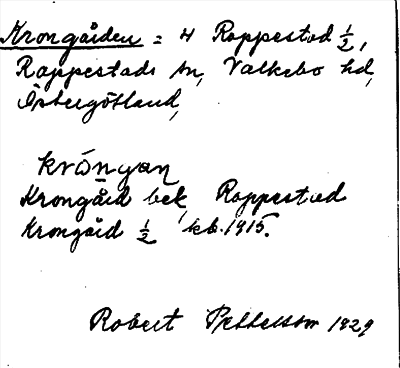 Krongården = 4 Rappestad ½,
Rappestads sn, Valkebo hd,
Östergötland,
krǻngan
Krongård bek, Rappestad
Krongård ½ kb. 1915.
Robert Pettersson 1929